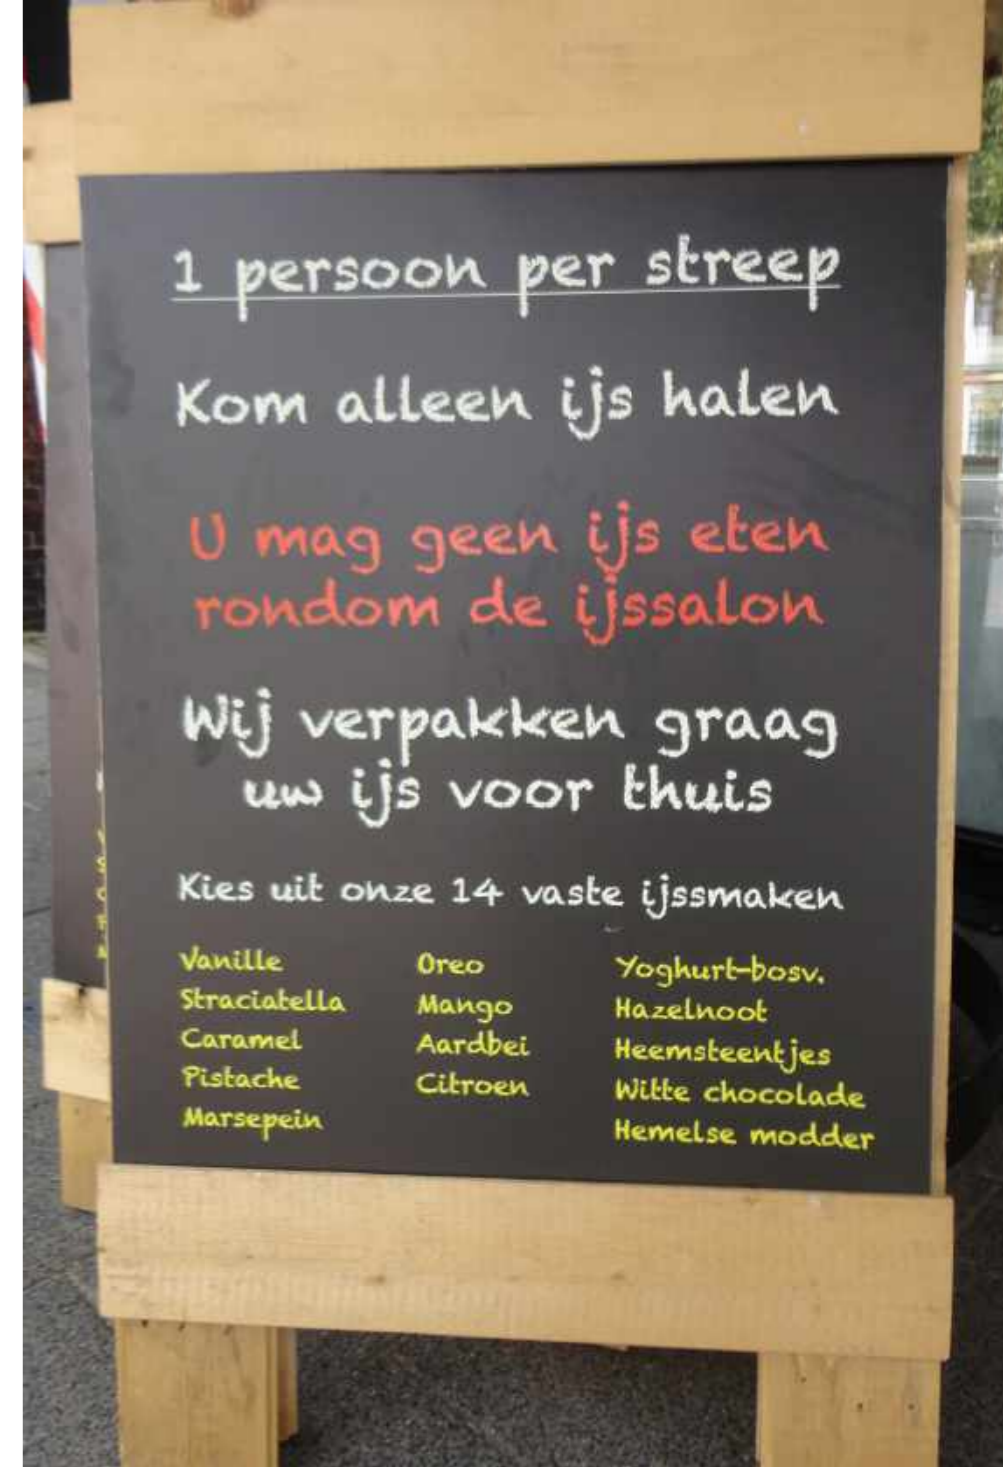 1 persoon per streep
Kom alleen ijs halen
U mag geen ijs eten
rondom de ijssalon
Wij verpakken graag
uw ijs voor thuis
Kies uit onze 14 vaste ijssmaken
Vanille
Straciatella
Caramel
Pistache
Marsepein
Oreo
Mango
Aardbei
Citroen
Yoghurt-bosv.
Hazelnoot
Heemsteentjes
Witte chocolade
Hemelse modder